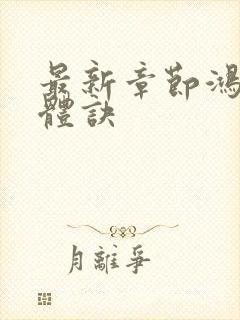 最新章節鴻
體訣
月離爭